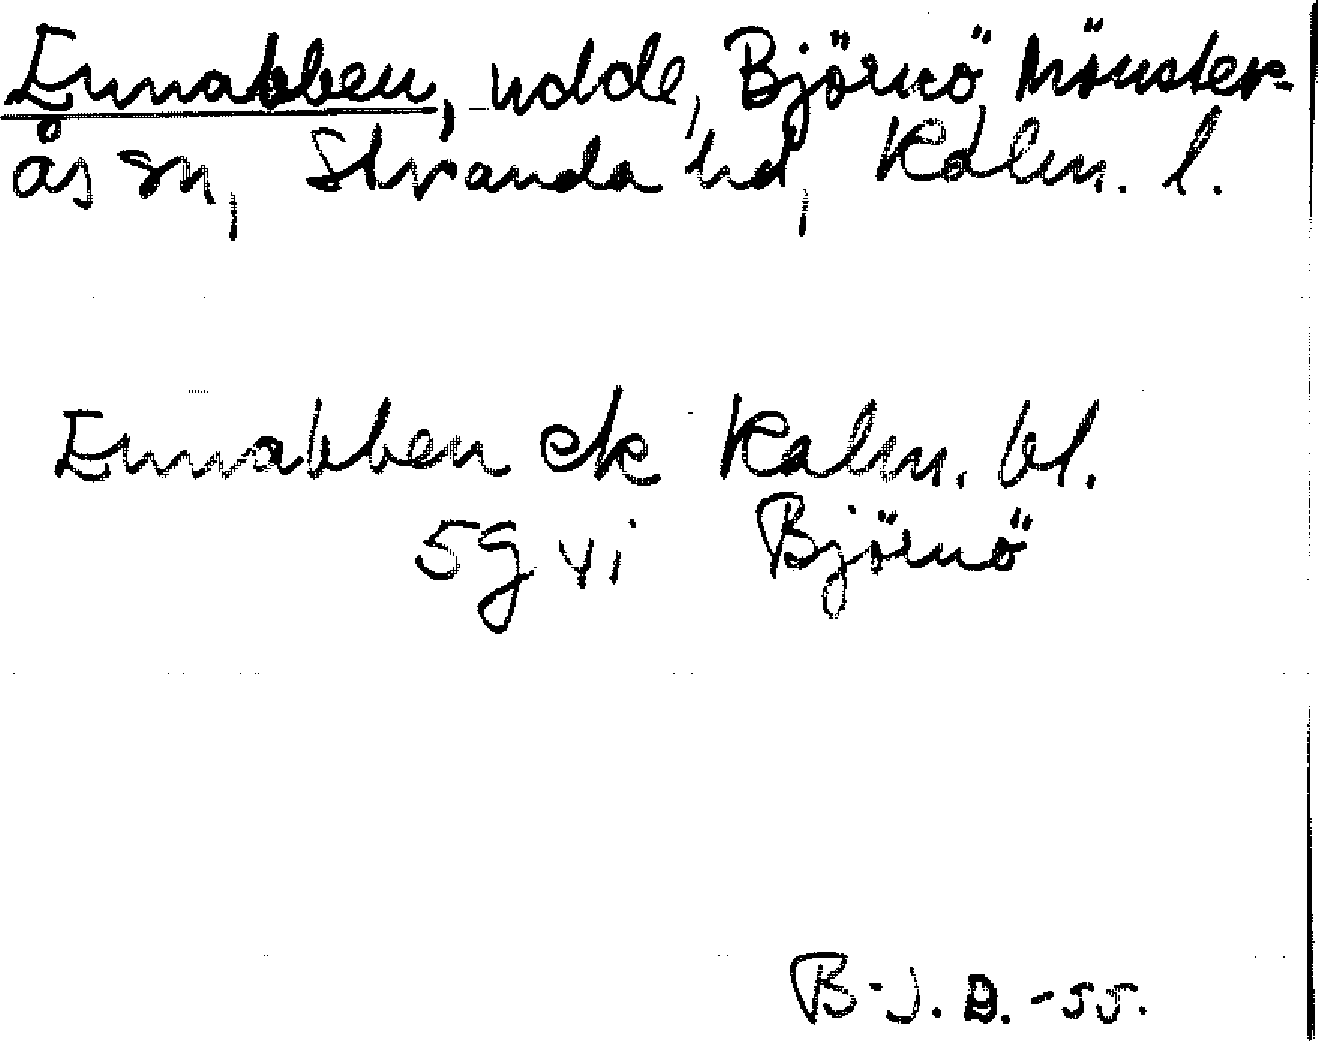 Ennabben, udde, Björnö, Mönster-
ås sn, Stranda hd, Kalm. l.
Ennabben ek Kalm. bl.
5g vi Björnö
B-J. B. -55.